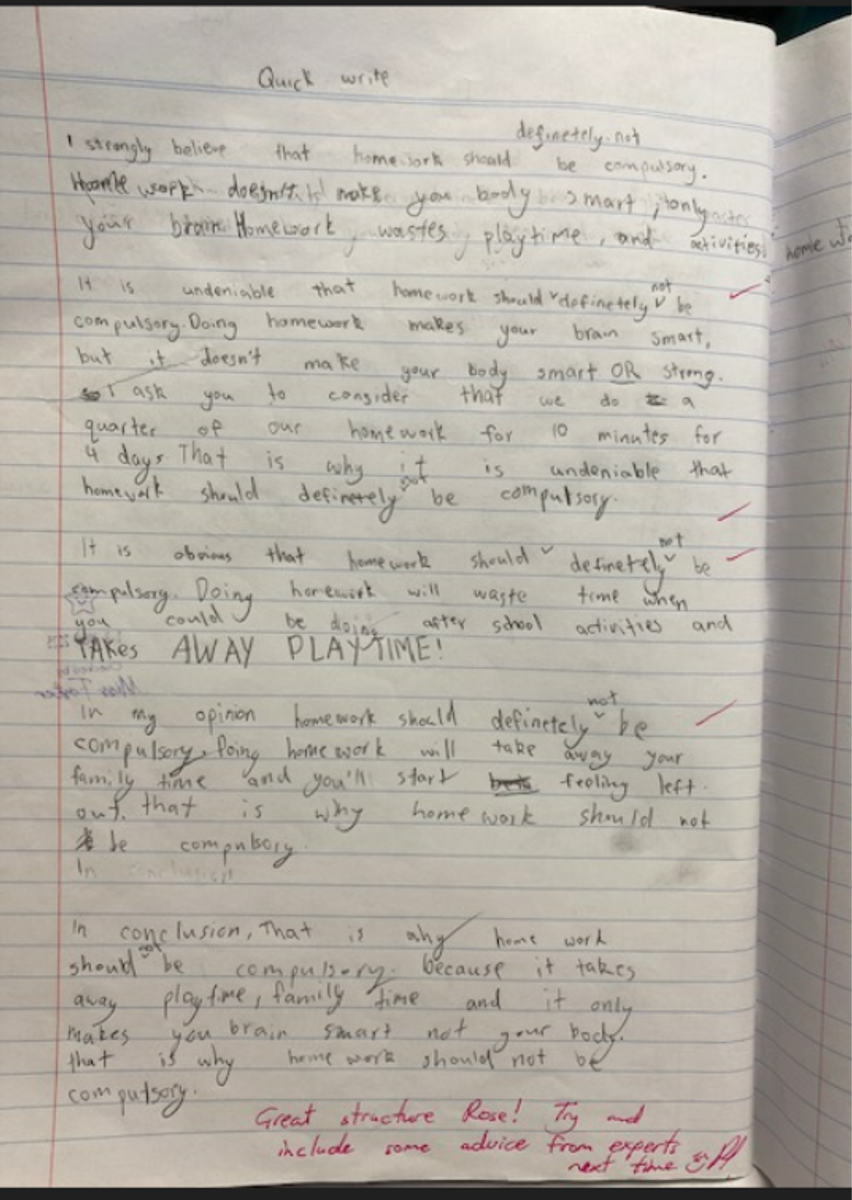 Quick write
definetely not
I strongly believe that homework should be compulsory.
Home work doesn't make you body smart, it only
your brain. Homework wastes playtime, and activities.
home wo
It is undeniable that homework should definetely not be
compulsory. Doing homework makes your brain smart,
but it doesn't make your body smart OR strong.
I ask you to consider that we do a
quarter of our homework for 10 minutes for
4 days. That is why it is undeniable that
homework should definetely not be compulsory.
It is obvious that homework should definetely not be
compulsory. Doing homework will waste time when
you could be doing after school activities and
TAKes AWAY PLAYTIME!
In my opinion homework should definetely not be
compulsory. Doing home work will take away your
family time and you'll start feeling left
out. that is why home work should not
be compulsory.
In conclusion
In conclusion, That is why home work
should not be compulsory. because it takes
away playtime, family time and it only
makes you brain smart not your body.
that is why home work should not be
compulsory.
Great structure Rose! Try and
include some advice from experts
next time